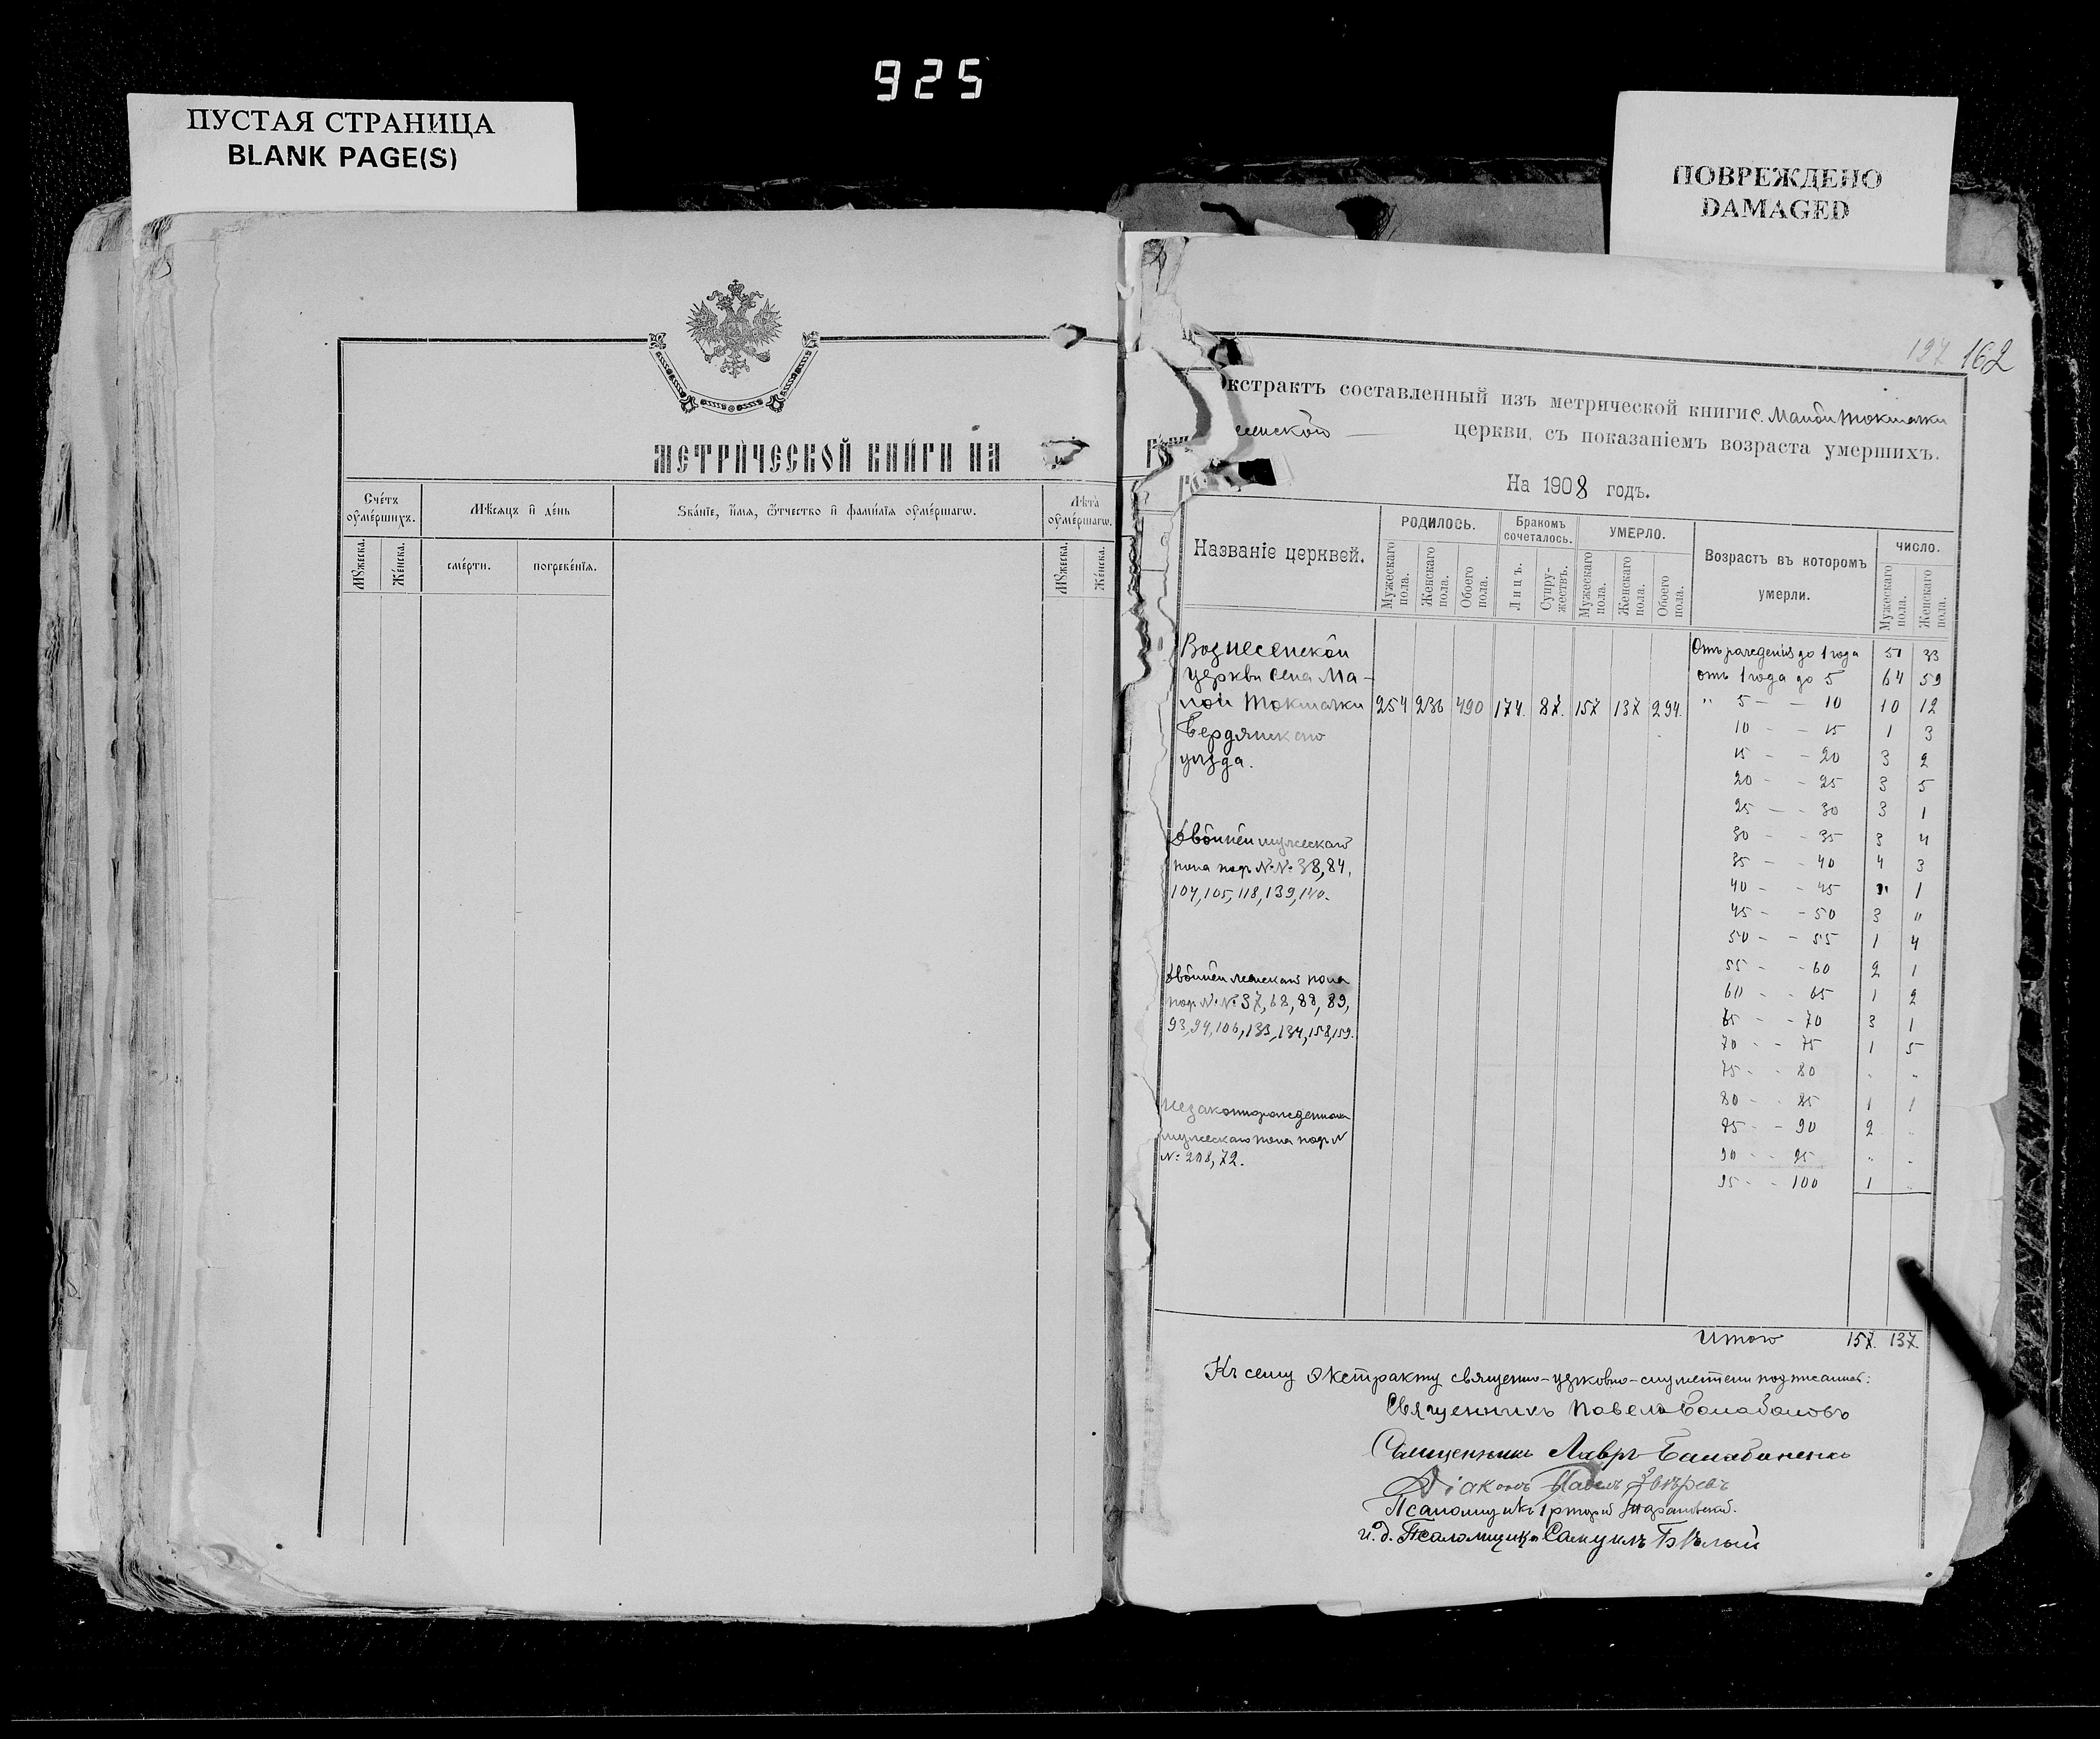 925
ПУСТАЯ СТРАНИЦА
BLANK PAGE(S)
ПОВРЕЖДЕНО
DAMAGED
МЕТРИЧЕСКОЙ КНИГИ НА
Сче́тъ оумершихъ.
Мѣсяцъ и день
Зва́нїе, и҆́мя, ѻ҆́тчество и҆ фами́лїя оумершагѡ.
Лѣта̀ оумершагѡ.
Мꙋжеска.
Же́нска.
сме́рти.
погребе́нїя.
Мꙋжеска.
Же́нска.
197 162
кстрактъ составленный изъ метрической книги с. Малой Токмачки
енской — церкви, съ показаніемъ возраста умершихъ.
На 1908 годъ.
Названіе церквей.
РОДИЛОСЬ.
Бракомъ сочеталось.
УМЕРЛО.
Возрастъ въ которомъ умерли.
ЧИСЛО.
Мужескаго пола.
Женскаго пола.
Обоего пола.
Лицъ.
Супружествъ.
Мужескаго пола.
Женскаго пола.
Обоего пола.
Мужескаго пола.
Женскаго пола.
Вознесенской
церкви села Ма-
лой Токмачки 254 236 490 174. 87. 157 137 294.
Бердянскаго
уѣзда.
Отъ рожденія до 1 года 51 33
отъ 1 года до 5 64 59
" 5 — — 10 10 12
10 - - 15 1 3
15 - - 20 3 2
20 - - 25 3 5
25 - - 30 3 1
30 - - 35 3 4
35 - - 40 4 3
40 - - 45 " 1
45 - - 50 3 "
50 - - 55 1 4
55 - - 60 2 1
60 - - 65 1 2
65 - - 70 3 1
70 - - 75 1 5
75 - - 80 " "
80 - - 85 1 1
85 - - 90 2 "
90 - - 95 " "
95 - - 100 1 "
Двойней мужескаго
пола подъ №№ 38, 84,
104, 105, 118, 139, 140.
Двойней женскаго пола
подъ №№ 37, 68, 88, 89,
93, 94, 106, 133, 134, 158, 159.
Незаконнорожденныхъ
мужескаго пола подъ №
№ 72.
Итого 157. 137.
Къ сему экстракту священно-церковно-служители подписались:
Священникъ Павелъ Балабановъ
Священникъ Лавръ Балабаненко
Діаконъ Павелъ Звѣревъ
Псаломщикъ
и. д. Псаломщика Самуилъ Бѣлый